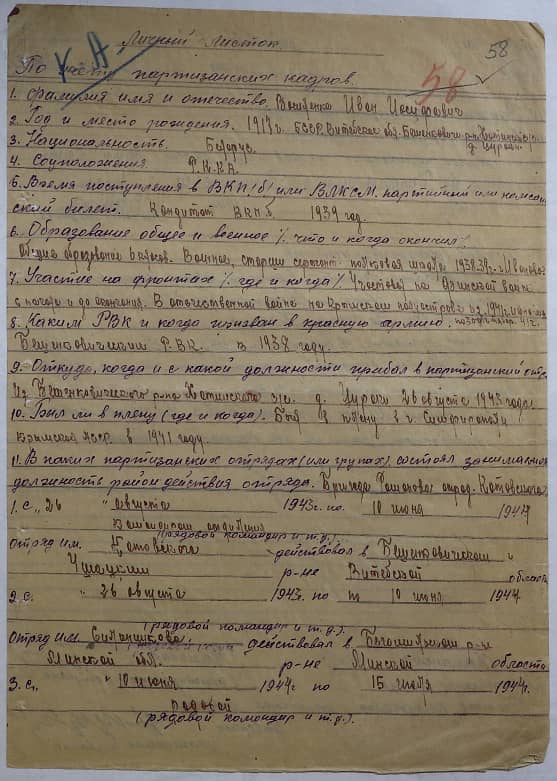 58
58
Личный Листок.
По части партизанских кадров.
1. Фамилия имя и отечество. Иван
2. Год и место рождения. 1917г. БССР, Витебская обл. Бешенковичс. р-н
3. Национальность. Белорус.
4. Соцположения Р.К.К.А.
5. Время поступления в ВКП(б) или ВЛКСМ. партийный или комсомо
ский билет. Кандитат ВКПб. 1939 год.
6. Образование общее и военное % что и когда окончил %
Общее образование Военное, старши сержант. полковая школа 1938-39г. г. Иваново
7. Участие на фронтах % где и когда % Участвовал на Финской войне
с начала и до окончания. В отечественной войне на Крымском полуострове из 1941г.
8. Каким РВК и когда призван в красную армию.
Бешенковичским РВК. в 1938 году.
9. Откудо, когда и с какой должности прибал в партизанский отр.
Из Бешенковичского р-на с/с. д. 26 августа 1943 года.
10. Был ли в плену (где и когда). Был в плену в г. Симфирополь
Крымская АССР. в 1941 году.
11. В каких партизанских отрядах (или групах) состоял занимаемая
должность район действия отряда. Бригада отряд. Котовского
1. с „26 " августа 1943г. по. 10 июня 1944
командиром отделения
(рядовой командир и т.д.)
Отряд им. Котовского действовал в Бешенковичском и
Ушацким р-не Витебской области
2. с. " 26 августа 1943. по 10 июня 1944
(рядовой командир и т.д.).
Отряд им. действовал в р-н
Минской обл. р-не Минской области
3. с. " 10 июня 1944г. по 15 июля 1944г.
рядовой
(рядовой командир и т.д.).